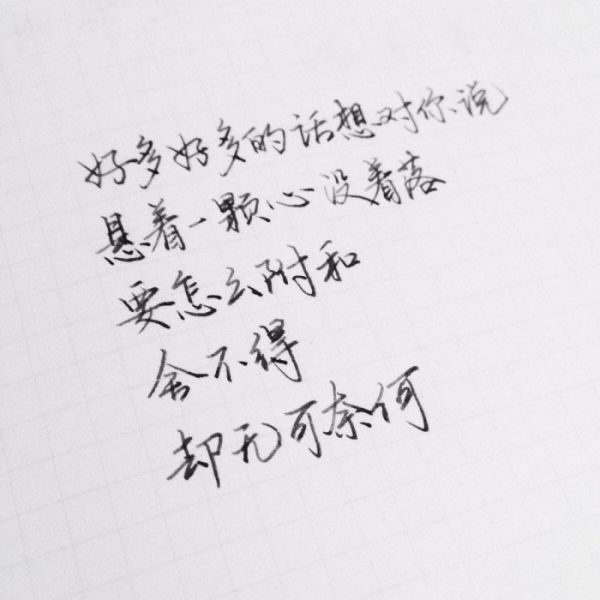 好多好多的话想对你说
悬着一颗心没着落
要怎么附和
舍不得
却无可奈何